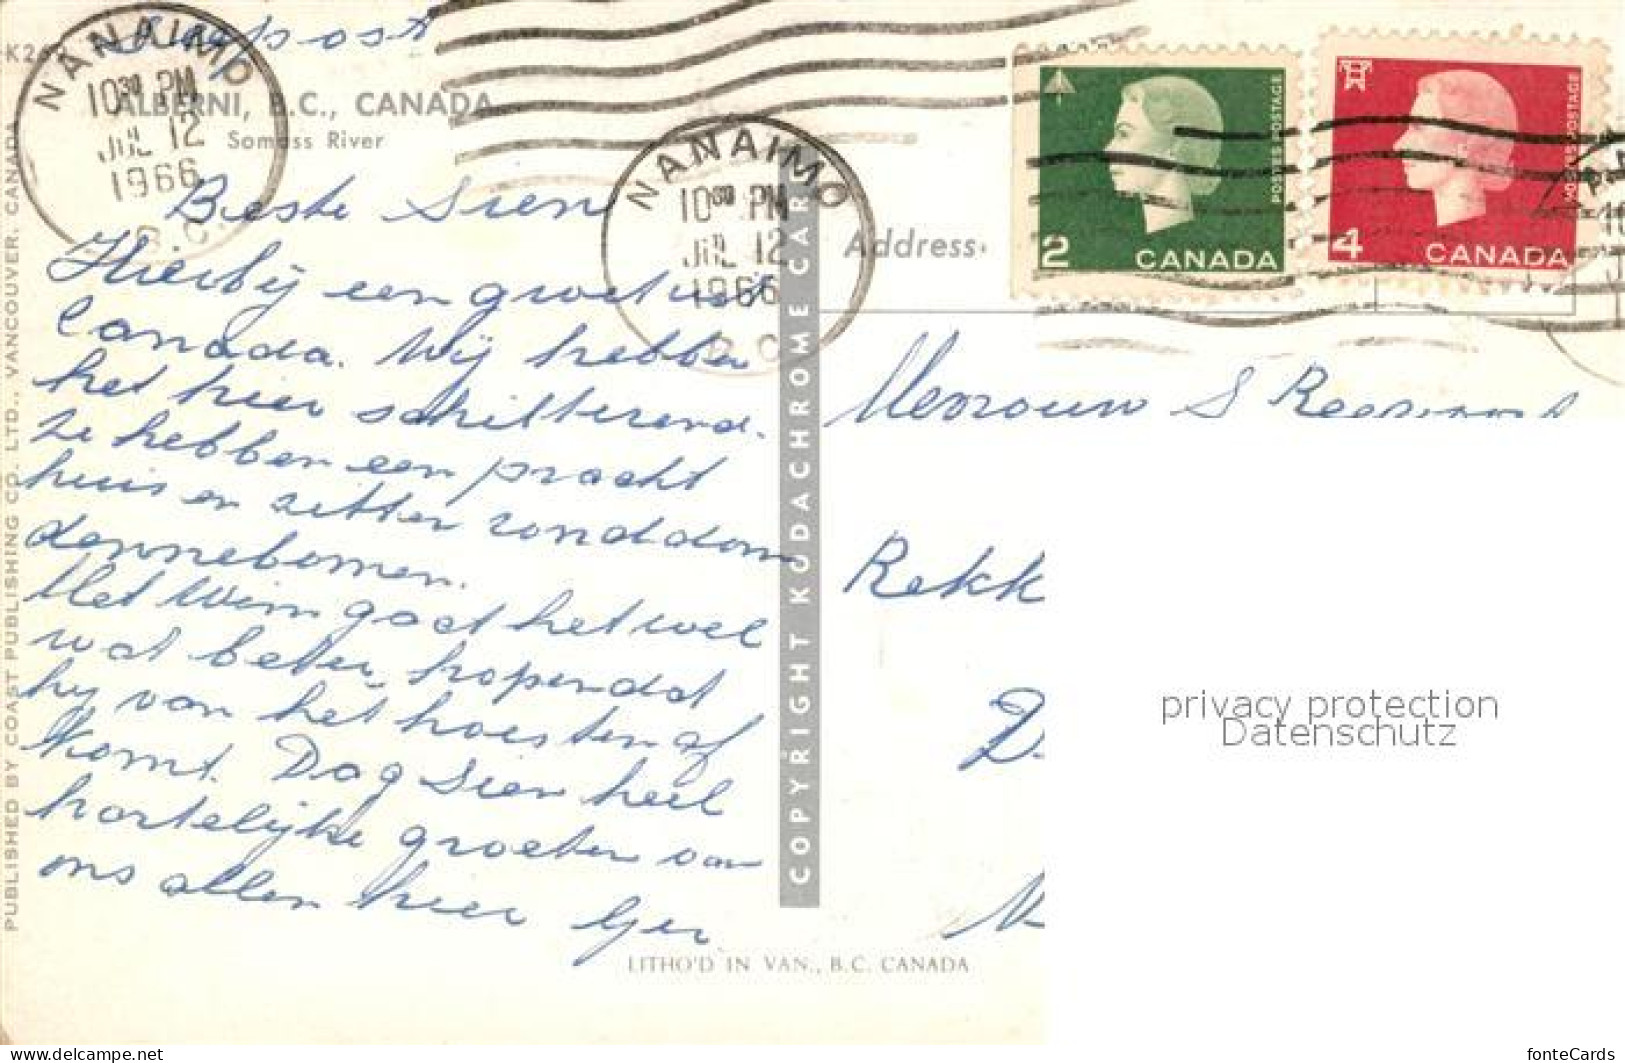 Luchtpost
NANAIMO
10 30 PM
JUL 12
1966
B.C.
ALBERNI, B.C., CANADA
Somass River
Beste Sien
Hierbij een groet uit
Canada. Wij hebben
het hier schitterend.
Ze hebben een pracht
huis en zitten ronddom
dennebomen.
Met Wim gaat het wel
wat beter, hopendat
hij van het hoesten af
komt. Dag Sien heel
hartelijke groeten van
ons allen hier Ger
PUBLISHED BY COAST PUBLISHING CO. LTD., VANCOUVER, CANADA
COPYRIGHT KODACHROME CARD
LITHO'D IN VAN., B.C. CANADA
NANAIMO
10 30 PM
JUL 12
1966
B.C.
Address
2 CANADA
POSTES POSTAGE
4 CANADA
POSTES POSTAGE
Mevrouw S
Rekk
privacy protection
Datenschutz
www.delcampe.net
fonteCards